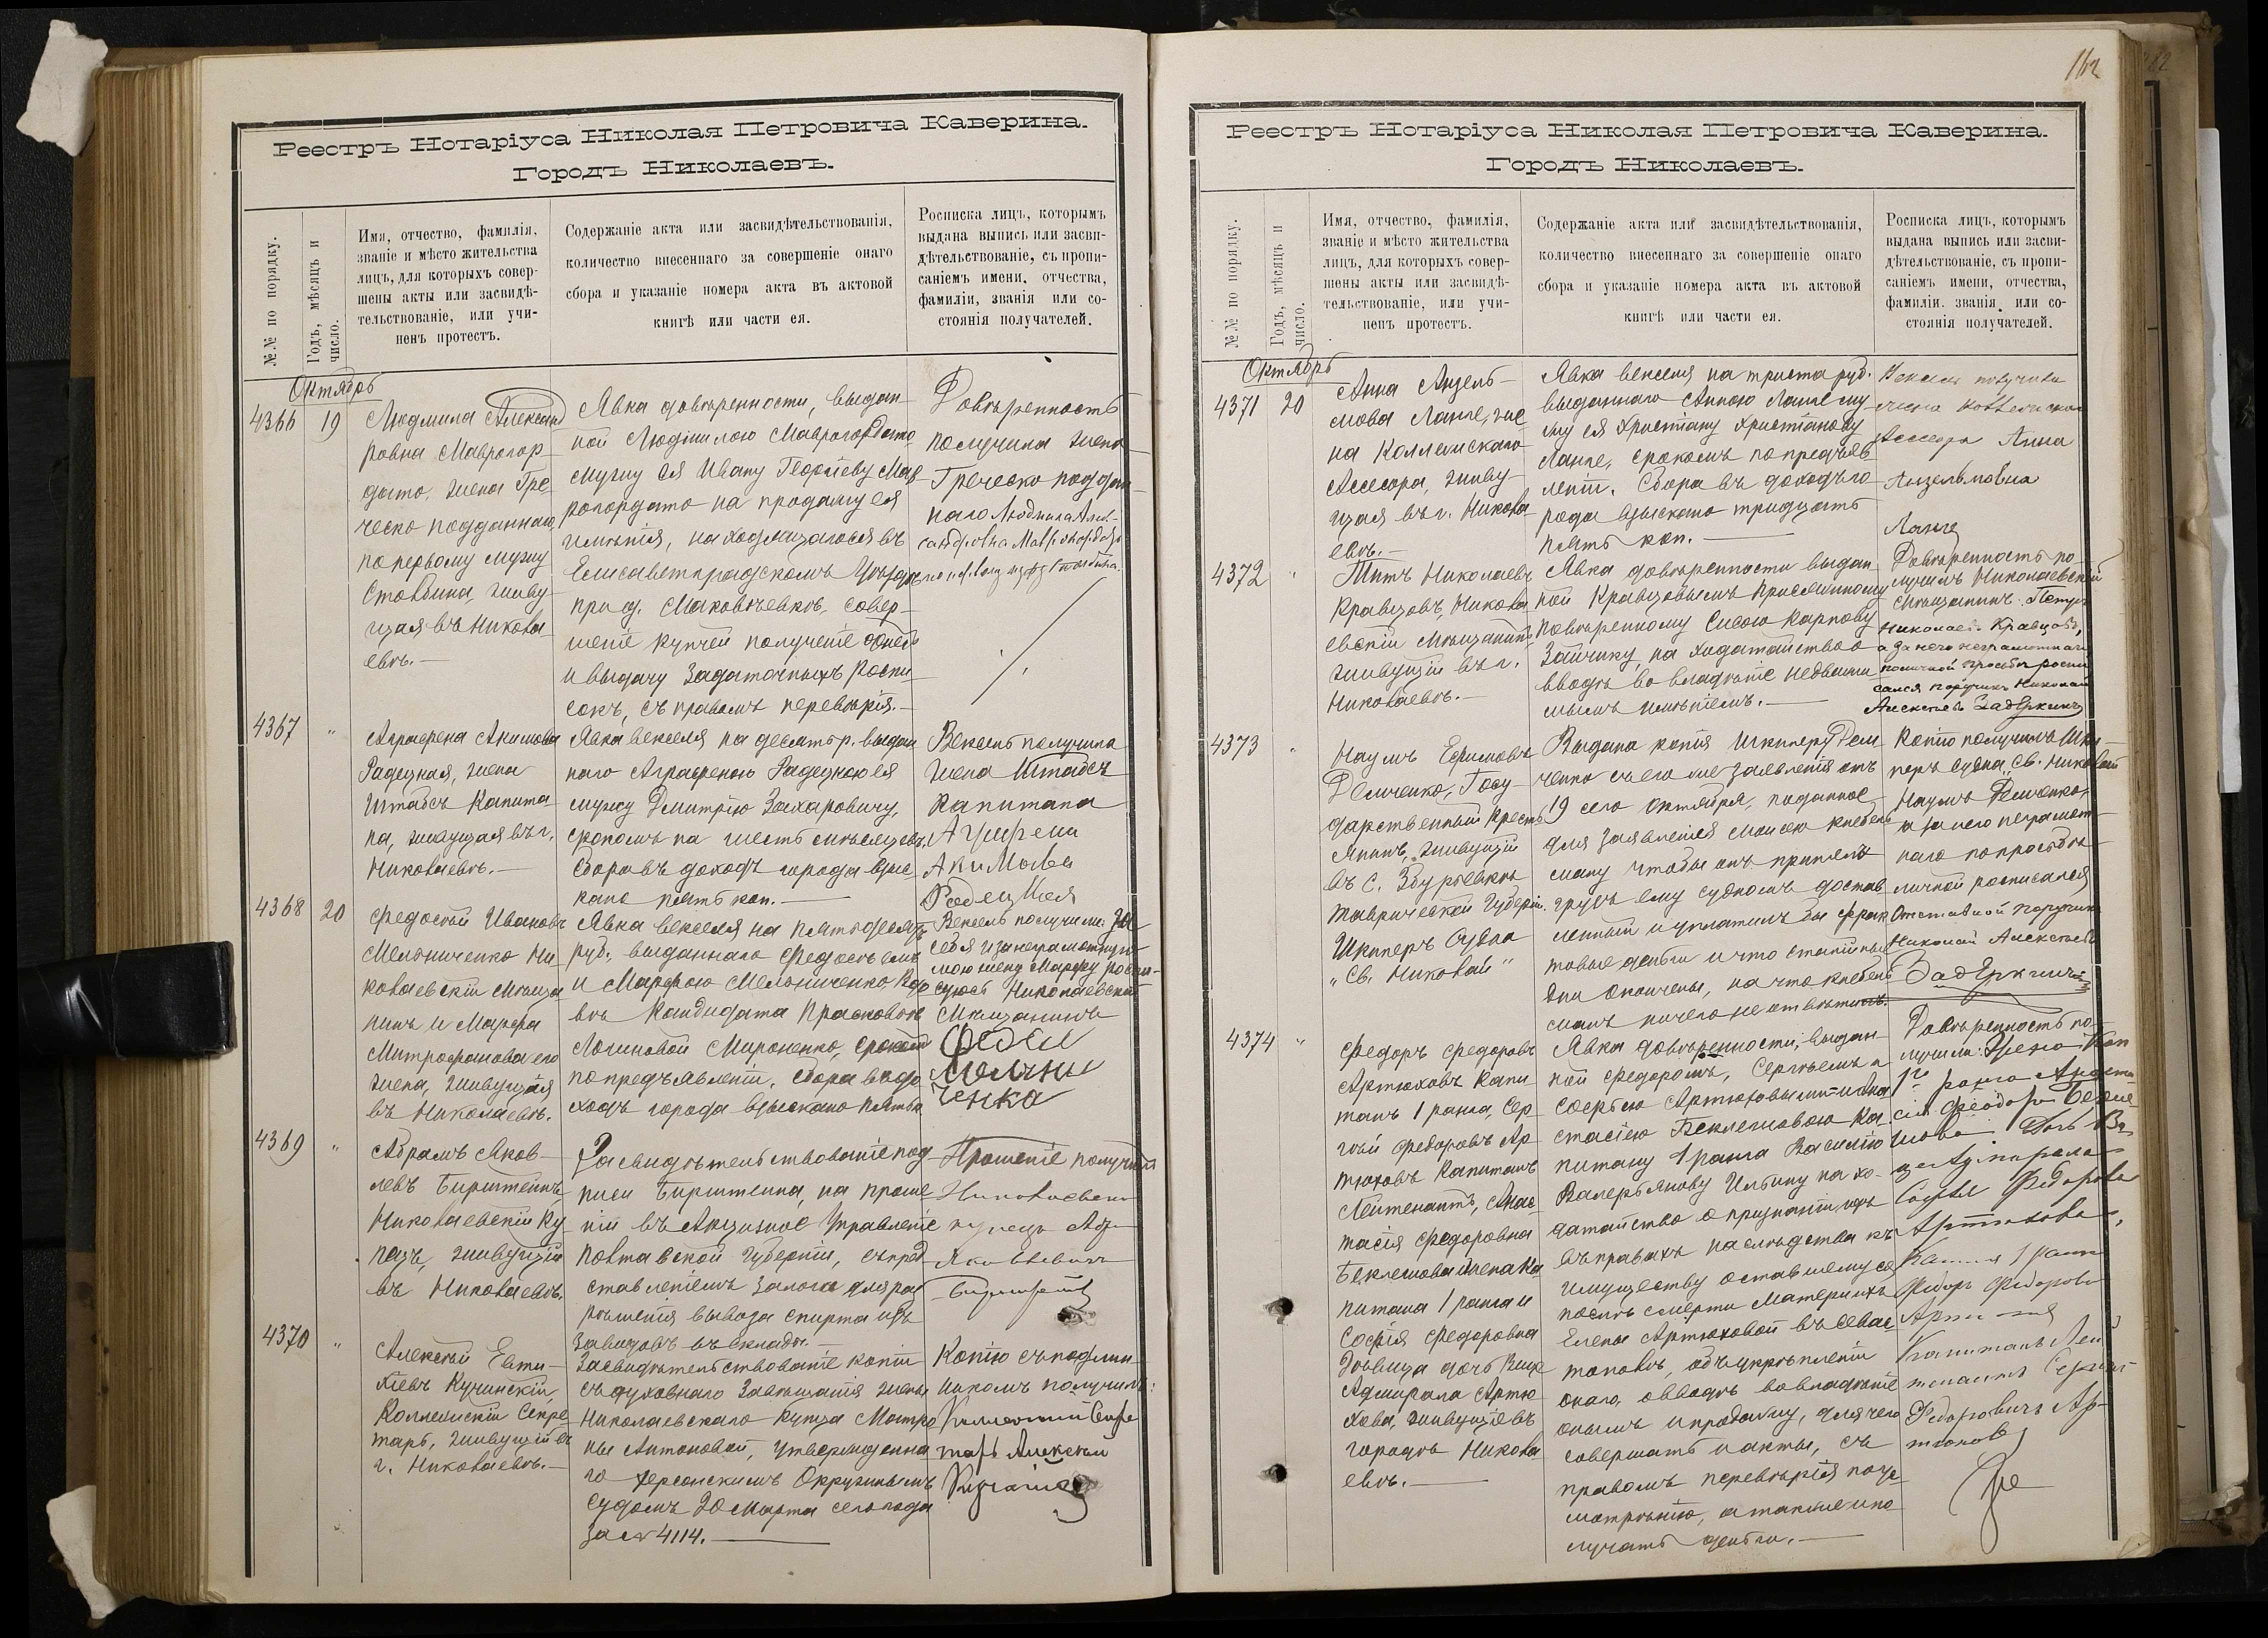 Реестръ Нотаріуса Николая Петровича Каверина.
Городъ Николаевъ.
№.№ по порядку.
Годъ, мѣсяцъ и
число.
Имя, отчество, фамилія,
званіе и мѣсто жительства
лицъ, для которыхъ совер-
шены акты или засвидѣ-
тельствованіе, или учи-
ненъ протестъ.
Содержаніе акта или засвидѣтельствованія,
количество внесеннаго за совершеніе онаго
сбора и указаніе номера акта въ актовой
книгѣ или части ея.
Росписка лицъ, которымъ
выдана выпись или засви-
дѣтельствованіе, съ пропи-
саніемъ имени, отчества,
фамиліи, званія или со-
стоянія получателей.
Октябрь
4366 19
Людмила Александ
ровна Маврогор-
дато, жена Гре-
ческо подданнаго,
по первому мужу
Стоббина, живу-
щая въ Никола
евѣ.—
Явка довѣренности, выдан-
ной Людмилою Маврогордато
мужу ея Ивану Георгіеву Мав
рогордато на продажу ея
имѣнія, находящагося въ
Елисаветградскомъ Уѣздѣ
при д. Маковѣевкѣ, совер-
шеніе купчей полученіе денегъ
и выдачу задаточныхъ роспи-
сокъ, съ правомъ перевѣрія.—
Довѣренность
получила жена
Греческо поддан-
наго Людмила Алек-
сандровна Маврогордато
4367 "
Аграфена Акимова
Радецкая, жена
Штабсъ Капита
на, живущая въ г.
Николаевѣ.—
Явка векселя на десять р. выдан
наго Аграфеною Радецкою ея
мужу Дмитрію Захаровичу,
срокомъ на шесть мѣсяцевъ.
Сбора въ доходъ города взыс-
кано пять коп.—
Вексель получила
жена Штабсъ
Капитана
Аграфена
Акимова
Радецкая
4368 20
Федосѣй Ивановъ
Мельниченко Ни-
колаевскій Мѣща
нинъ и Марфа
Митрофанова его
жена, живущія
въ Николаевѣ.
Явка векселя на пятьдесятъ
руб. выданнаго Федосѣемъ
и Марфою Мельниченко вдо
вѣ Кандидата Прасковьѣ
Логиновой Мироненко, срокомъ
по предъявленіи. Сбора въ до
ходъ города взыскано пять к
Вексель получили: за
себя и за неграмотную
мою жену Марфу роспи-
суюсь Николаевскій
Мѣщанинъ
Федосій
Мельни
ченко
4369 "
Абрамъ Яков-
левъ Бирштейнъ,
Николаевскій Ку-
пецъ, живущій
въ Николаевѣ.
Засвидѣтельствованіе под-
писи Бирштейна, на проше
ніи въ Акцизное Управленіе
Полтавской Губерніи, съ пред
ставленіемъ залога для раз
рѣшенія вывоза спирта изъ
заводовъ въ склады.—
Прошеніе получилъ
Николаевскій
купецъ
Яковлевичъ
Бирштейнъ
4370 "
Алексѣй Евти-
хіевъ Кучинскій,
Коллежскій Секре
тарь, живущій въ
г. Николаевѣ.—
Засвидѣтельствованіе копіи
съ духовнаго завѣщанія жены
Николаевскаго Купца Матре
ны Антоновой, утвержденна
го Херсонскимъ Окружнымъ
Судомъ 20 Марта сего года
за № 4114.—
Копію съ подлин-
никомъ получилъ:
Коллежскій Секре
тарь Алексѣй
Кучинскій
162
Реестръ Нотаріуса Николая Петровича Каверина.
Городъ Николаевъ.
№.№ по порядку.
Годъ, мѣсяцъ и
число.
Имя, отчество, фамилія,
званіе и мѣсто жительства
лицъ, для которыхъ совер-
шены акты или засвидѣ-
тельствованіе, или учи-
ненъ протестъ.
Содержаніе акта или засвидѣтельствованія,
количество внесеннаго за совершеніе онаго
сбора и указаніе номера акта въ актовой
книгѣ или части ея.
Росписка лицъ, которымъ
выдана выпись или засви-
дѣтельствованіе, съ пропи-
саніемъ имени, отчества,
фамиліи. званія или со-
стоянія получателей.
Октябрь
4371 20
Анна Анзель-
мова Ланге, же
на Коллежскаго
Ассесора, живу-
щая въ г. Никола
евѣ.—
Явка векселя на триста руб.
выданнаго Анною Ланге му-
жу ея Христіану Христіанову
Ланге, срокомъ по предъяв
леніи. Сбора въ доходъ го-
рода взыскано тридцать
пять коп.—
Вексель получила
жена Коллежскаго
Ассесора Анна
Анзельмовна
Ланге
4372 "
Титъ Николаевъ
Кравцовъ, Никола
евскій Мѣщанинъ,
живущій въ г.
Николаевѣ.—
Явка довѣренности выдан
ной Кравцовымъ Присяжному
Повѣренному Сысою Карпову
Зайчику, на ходатайство о
вводѣ во владѣніе недвижи
мымъ имѣніемъ.—
Довѣренность по-
лучилъ Николаевскій
Мѣщанинъ
Николаевъ Кравцовъ,
а за него неграмотнаго
по личной просьбѣ роспи
сался поручикъ Николай
Алексѣевъ Задеркинъ
4373 "
Наумъ Ефимовъ
Демченко, Госу-
дарственный Кресть
янинъ, живущій
въ С. Збурьевкѣ
Таврической Губерніи.
Шкиперъ Судна
"Св. Николай"
Выдана копія Шкиперу Дем
ченко съ его же заявленія отъ
19 сего Октября, поданное
для заявленія Моисею Кнебель
ману чтобы онъ принялъ
грузъ ему судномъ достав
ленный и уплатилъ бы фрах
товые деньги и что сталійные
дни окончены, на что Кнебель
манъ ничего не отвѣтилъ.
Копію получилъ Шки-
перъ Судна „Св. Николай
Наумъ Демченко,
а за него неграмот-
наго по просьбѣ
личной росписался
Отставной поручикъ
Николай Алексѣевъ
Задеркинъ
4374 "
Федоръ Федоровъ
Артюховъ Капи
танъ 1 ранга, Сер
гѣй Федоровъ Ар
тюховъ Капитанъ
Лейтенантъ, Анас
тасія Федоровна
Беклешова жена Ка
питана 1 ранга и
Софія Федоровна
Дѣвица дочь Вице
Адмирала Артю
хова, живущіе въ
городѣ Никола
евѣ.—
Явка довѣренности, выдан-
ной Федоромъ, Сергѣемъ и
Софьею Артюховыми и Ана
стасіею Беклешовою Ка
питану 1 ранга Василію
Валерьянову Ильину на хо-
датайство о признаніи ихъ
въ правахъ наслѣдства къ
имуществу оставшемуся
послѣ смерти Матери ихъ
Елены Артюховой въ Севас
тополѣ, объ укрѣпленіи
онаго, о вводѣ во владѣніе
онымъ и продажу, для чего
совершать и акты, съ
правомъ перевѣрія по ус
мотрѣнію, а также и по
лучать деньги.—
Довѣренность по-
лучили: Жена Кап
1го ранга Анаста-
сія Феодоров Бекле-
шова. Дочь Ви
це Адмирала
Софья Федорова
Артюхова,
Капит 1 ранга
Федоръ Федоровъ
Артюховъ
Капитанъ Лей
тенантъ Сергѣй
Федоровичъ Ар-
тюховъ